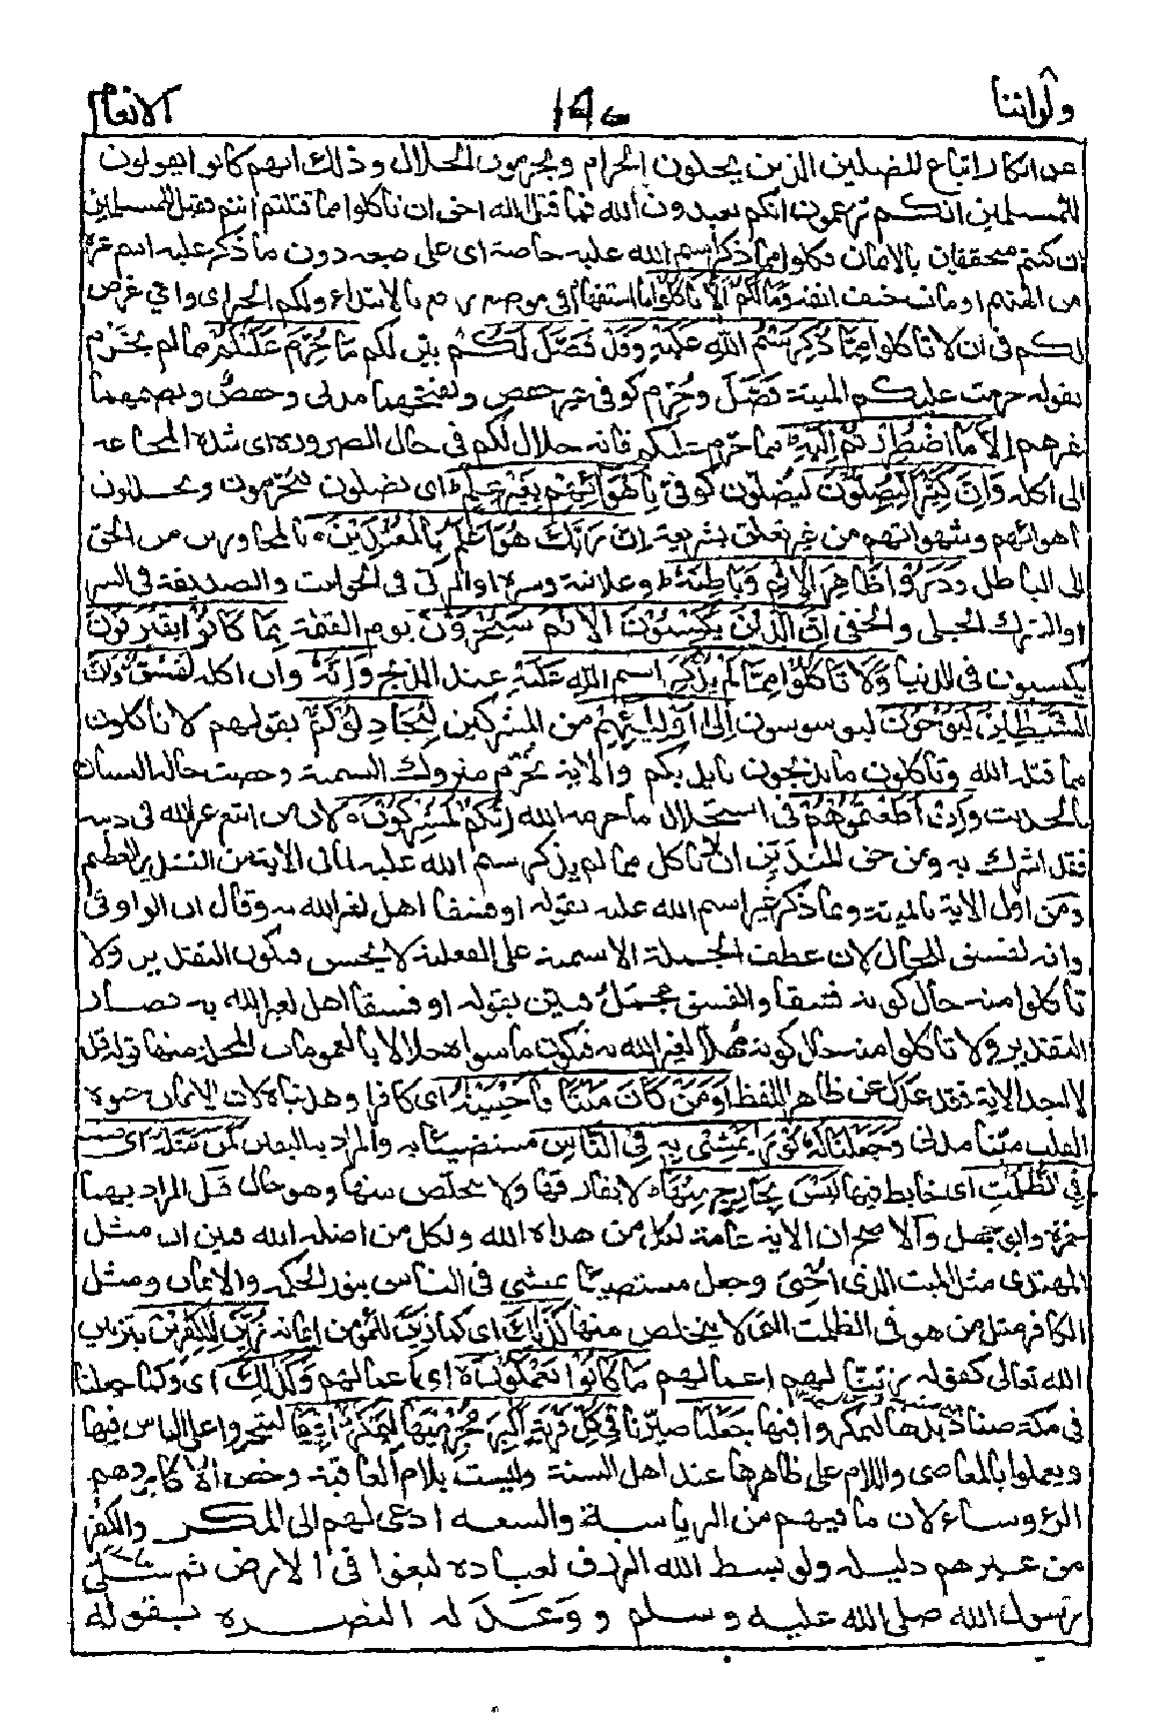 ولواننا ١٤٠ الانعام
عن انكار اتباع المضلين الذين يحلون الحرام ويحرمون الحلال وذلك انهم كانوا يقولون
للمسلمين انكم تزعمون انكم تعبدون الله فما قتل الله احق ان تاكلوا مما قتلتم انتم فقيل للمسلمين
ان كنتم متحققين بالايمان فكلوا مما ذكر اسم الله عليه خاصة اى على ذبحه دون ما ذكر عليه اسم غيره
من الهتهم او مات حتف انفه وما لكم الا تاكلوا ما استفهام فى موضع رفع بالابتداء ولكم الخبر اى واى غرض
لكم فى ان لا تاكلوا مما ذكر اسم الله عليه وقد فصل لكم بين لكم ما حرم عليكم مما لم يحرم
بقوله حرمت عليكم الميتة فصل وحرم كوفى غير حفص وبفتحهما مدنى وحفص وبضمهما
غيرهم الا ما اضطررتم اليه مما حرم عليكم فانه حلال لكم فى حال الضرورة اى شدة المجاعة
الى اكله وان كثيرا ليضلون ليضلون كوفى باهوائهم بغير علم اى يضلون فيحرمون ويحللون
باهوائهم وشهواتهم من غير تعلق بشريعة ان ربك هو اعلم بالمعتدين بالمجاوزين من الحق
الى الباطل وذروا ظاهر الاثم وباطنه علانيته وسره او الزنى فى الحوانيت والصديقة فى السر
او الشرك الجلى والخفى ان الذين يكسبون الاثم سيجزون يوم القيمة بما كانوا يقترفون
يكسبون فى الدنيا ولا تاكلوا مما لم يذكر اسم الله عليه عند الذبح وانه وان اكله لفسق وان
الشيطين ليوحون ليوسوسون الى اوليئهم من المشركين ليجادلوكم بقولهم لا تاكلون
مما قتله الله وتاكلون ما تذبحون بايديكم والاية تحرم متروك التسمية وخصت حالة النسيان
بالحديث وان اطعتموهم فى استحلال ما حرمه الله انكم لمشركون لان من اتبع غير الله فى دينه
فقد اشرك به ومن حق المتدين ان لا ياكل مما لم يذكر اسم الله عليه لما فى الاية من التشديد العظيم
ومن اول الاية بالميتة وبما ذكر غير اسم الله عليه لقوله او فسقا اهل لغير الله به وقال ان الواو فى
وانه لفسق للحال لان عطف الجملة الاسمية على الفعلية لا يحسن فيكون التقدير ولا
تاكلوا منه حال كونه فسقا والفسق مجمل فبين بقوله او فسقا اهل لغير الله به فصار
التقدير ولا تاكلوا منه حال كونه مهلا لغير الله به فيكون ما سواه حلالا بالعمومات المحلة منها قوله قل
لا اجد الاية فقد عدل عن ظاهر اللفظ اومن كان ميتا فاحيينه اى كافرا فهديناه لان الايمان حيوة
القلب ميتا مدنى وجعلنا له نورا يمشى به فى الناس مستضيئا به والمراد به اليقين كمن مثله اى صفته
فى الظلمت اى خابط فيها ليس بخارج منها لا يفارقها ولا يتخلص منها وهو حال قيل المراد بهما
حمزة وابو جهل والاصح ان الاية عامة لكل من هداه الله ولكل من اضله الله فبين ان مثل
المهتدى مثل الميت الذى احيى وجعل مستضيئا يمشى فى الناس بنور الحكمة والايمان ومثل
الكافر مثل من هو فى الظلمت التى لا يتخلص منها كذلك اى كما زين للمؤمن ايمانه زين للكفرين بتزيين
الله تعالى كقوله زينا لهم اعمالهم ما كانوا يعملون اى اعمالهم وكذلك اى وكما جعلنا
فى مكة صناديدها ليمكروا فيها جعلنا صيرنا فى كل قرية اكبر مجرميها ليمكروا فيها ليتجبروا على الناس فيها
ويعملوا بالمعاصى واللام على ظاهرها عند اهل السنة وليست بلام العاقبة وخص الاكابر وهم
الرءوساء لان ما فيهم من الرياسة والسعة ادعى لهم الى المكر والكفر
من غيرهم دليله ولو بسط الله الرزق لعباده لبغوا فى الارض ثم سلى
رسول الله صلى الله عليه وسلم ووعد له النصرة بقوله